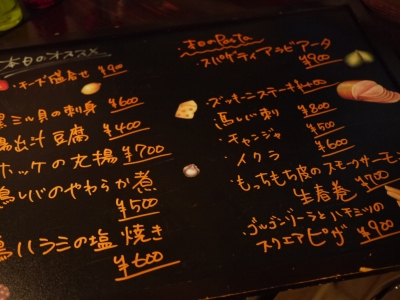 本日のオススメ
・チーズ盛合せ ¥900
黒ミル貝の刺身 ¥600
揚出汁豆腐 ¥400
ホッケの丸揚 ¥700
鶏レバのやわらか煮
¥500
鶏ハラミの塩焼き
¥600
・本日のPasta
・スパゲティアラビアータ
¥900
・ズッキーニステーキ ¥600
・鳥しい刺 ¥800
・チャンジャ ¥500
・イクラ ¥600
・もっちもち皮のスモークサーモン
生春巻 ¥700
・ゴルゴンゾーラとハチミツの
スクエアピザ ¥900